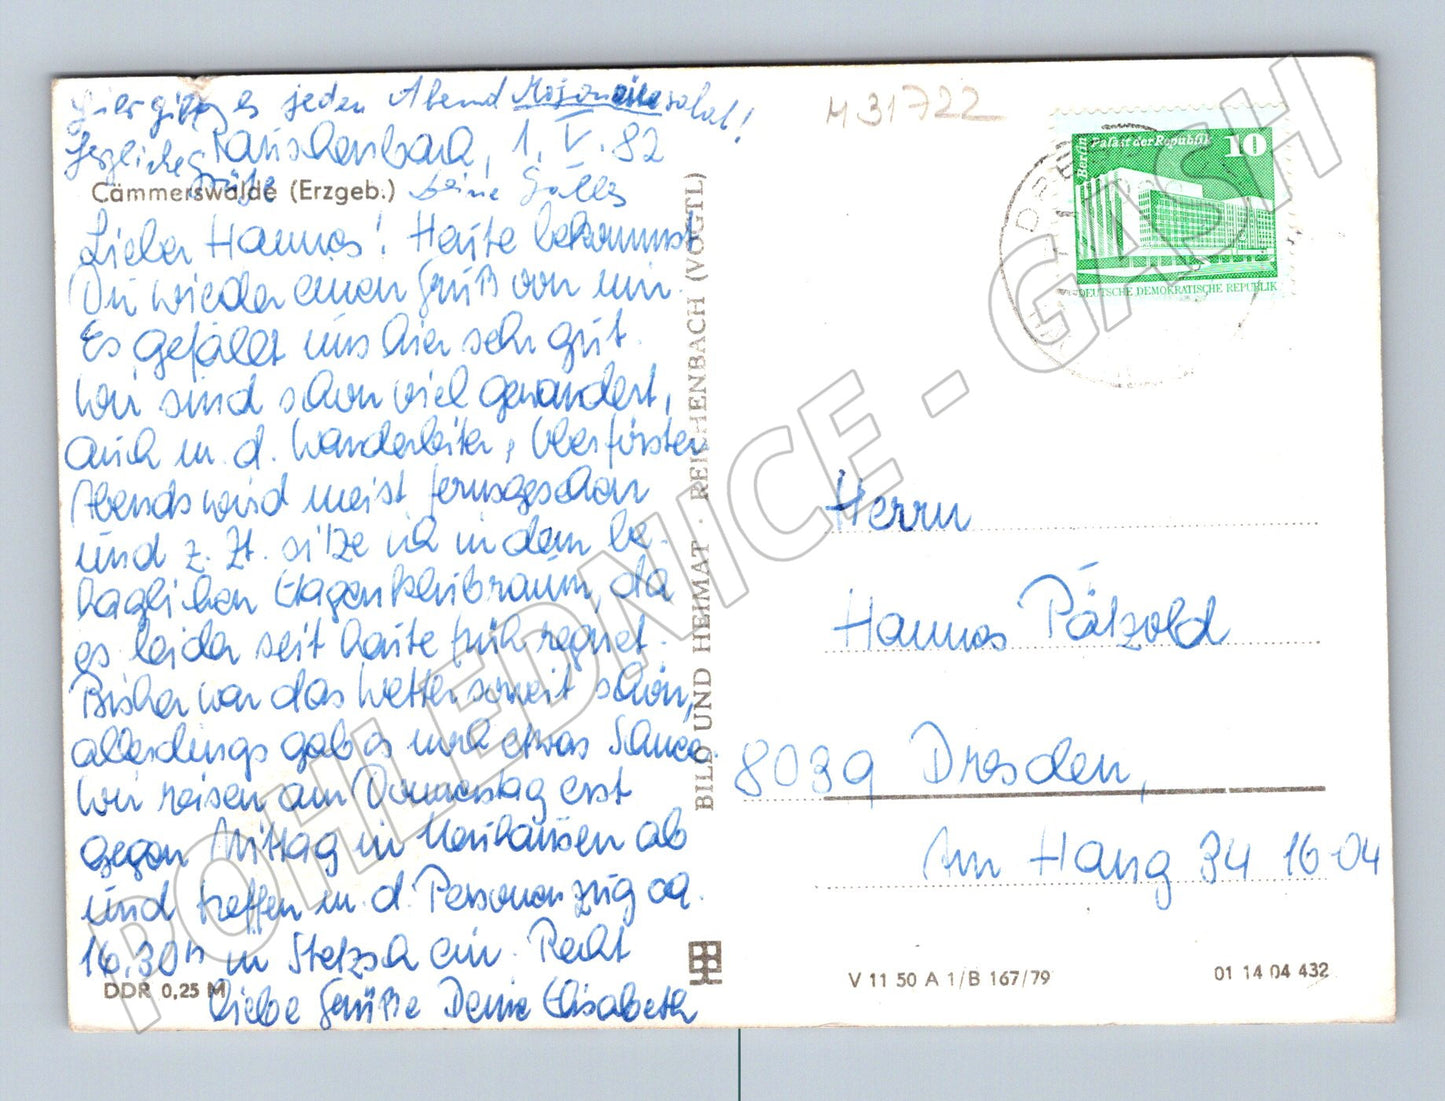 Hier gibt es jeden Abend Mayonnaisesalat!
Herzliche Grüße
Deine
Rauschenbach, 1. V. 82
Cämmerswalde (Erzgeb.)
Lieber Hannes! Heute bekommst
Du wieder einen Gruß von mir.
Es gefällt uns hier sehr gut.
Wir sind schon viel gewandert,
auch m. d. Wanderleiter, Oberförster
Abends wird meist ferngesehen
und z. Zt. sitze ich in dem be-
haglichen Etagenklubraum, da
es leider seit heute früh regnet.
Bisher war das Wetter soweit schön,
allerdings gab es noch etwas Schnee.
Wir reisen am Donnerstag erst
gegen Mittag in Neuhausen ab
und treffen m. d. Personenzug ca.
16.30h in Stetzsch ein. Recht
liebe Grüße Deine Elisabeth
DDR 0,25 M
BILD UND HEIMAT · REICHENBACH (VOGTL)
M 31722
Berlin
Palast der Republik
10
DEUTSCHE DEMOKRATISCHE REPUBLIK
Herrn
Hannes Pätzold
8039 Dresden,
Am Hang 34 16-04
V 11 50 A 1/B 167/79
01 14 04 432
POHLEDNICE - GASH